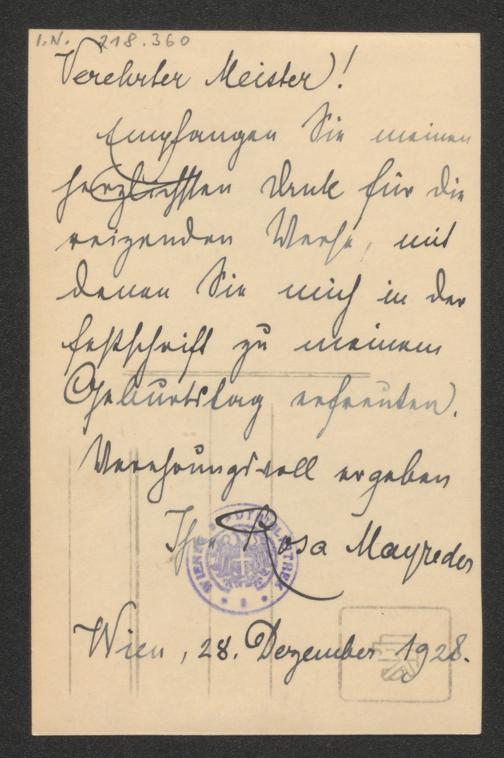 I.N. 218.360
Verehrter Meister!
Empfangen Sie meinen
herzlichsten Dank für die
reizenden Verse, mit
denen Sie mich in der
Festschrift zu meinem
Geburtstag erfreuten.
Verehrungsvoll ergeben
Ihre Rosa Mayreder
Wien, 28. Dezember 1928.